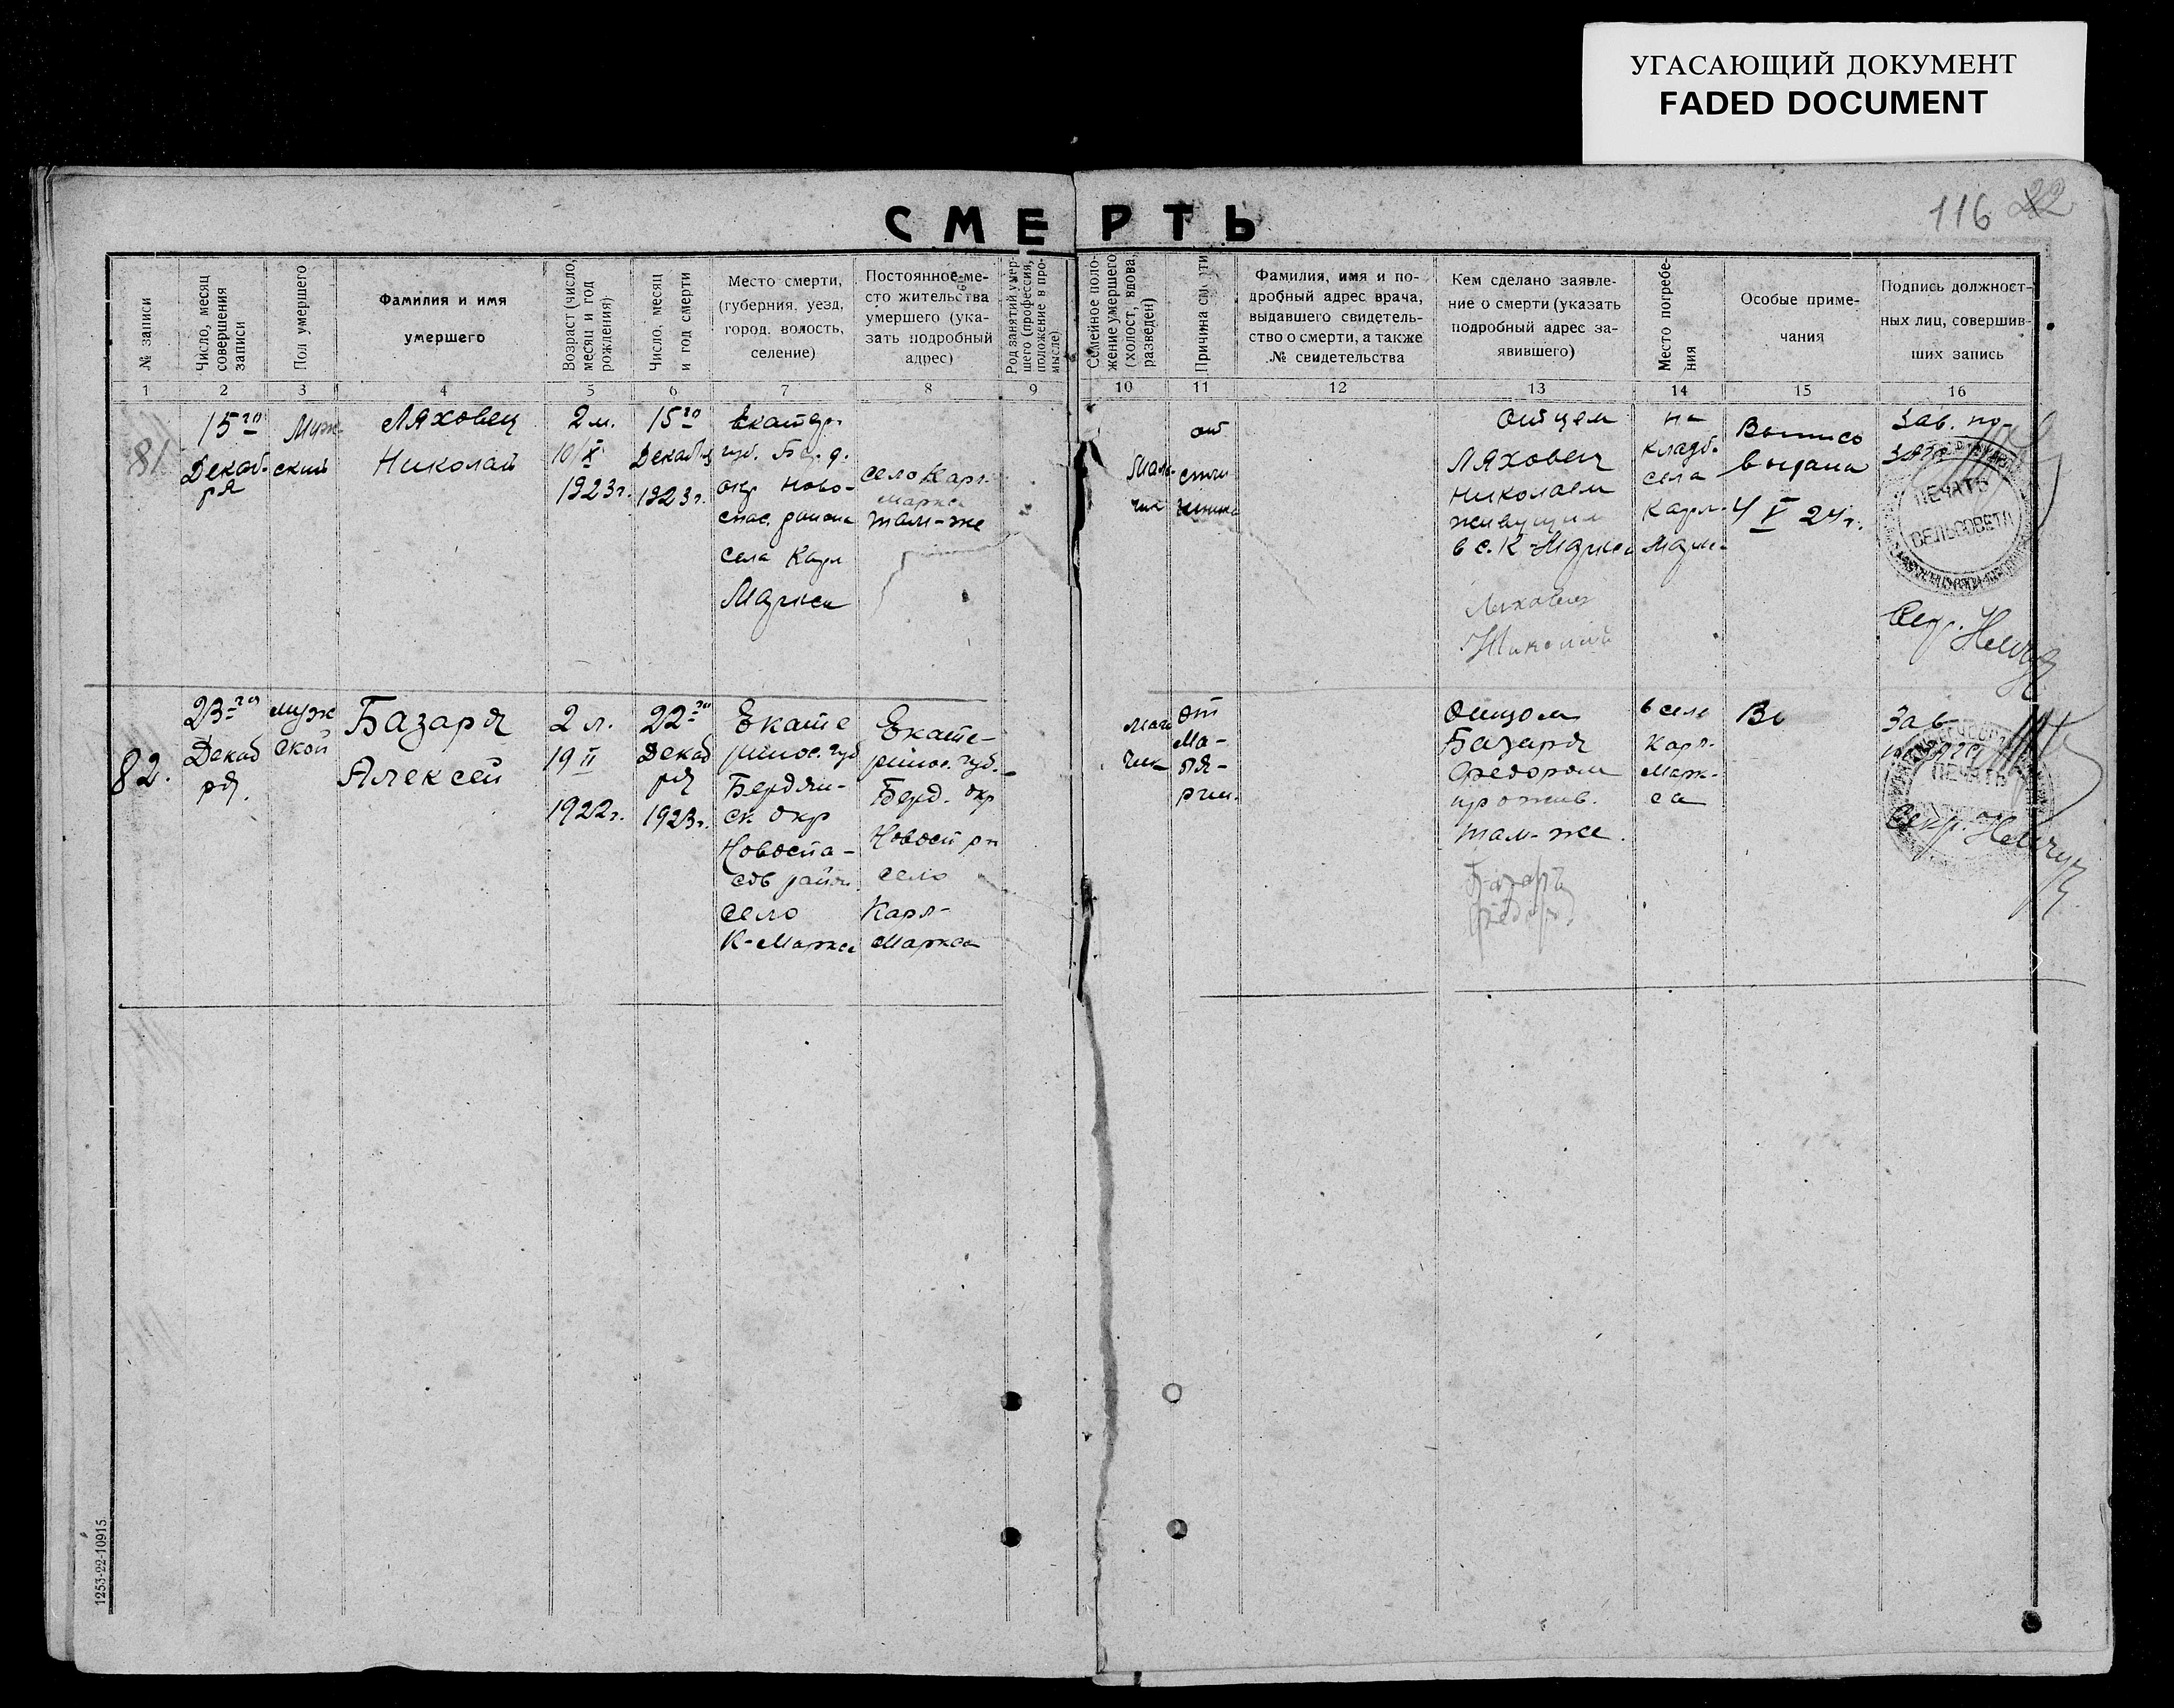 УГАСАЮЩИЙ ДОКУМЕНТ
FADED DOCUMENT
116 22
СМЕРТЬ
№ записи
Число, месяц
совершения
записи
Пол умершего
Фамилия и имя
умершего
Возраст (число,
месяц и год
рождения)
Число, месяц
и год смерти
Место смерти,
(губерния, уезд,
город, волость,
селение)
Постоянное ме-
сто жительства
умершего (ука-
зать подробный
адрес)
Род занятий умер-
шего (профессия,
положение в про-
мысле)
Семейное поло-
жение умершего
(холост, вдова,
разведен)
Причина смерти
Фамилия, имя и по-
дробный адрес врача,
выдавшего свидетель-
ство о смерти, а также
№ свидетельства
Кем сделано заявле-
ние о смерти (указать
подробный адрес за-
явившего)
Место погребе-
ния
Особые приме-
чания
Подпись должност-
ных лиц, совершив-
ших запись
1 2 3 4 5 6 7 8 9 10 11 12 13 14 15 16
81
15го
Декаб-
ря
Муж-
ский
Ляховец
Николай
2 м.
10/X
1923г.
15го
Декабря
1923г.
Екатер.
губ.
окр Ново-
спас. района
села Карл
Маркса
село Карл-
Маркса
там-же
Маль-
чик
от
Отцем
Ляховец
Николаем
живущим
в с. К-Маркса
Ляховец
Николай
на
кладб.
села
Карл-
Марк.
выдана
4 V 24г.
Зав. по-
ПЕЧАТЬ
СЕЛЬСОВЕТА
Секр.
82.
23-го
Декаб
ря.
муж
ской
Базаря
Алексей
2 л.
19 II
1922г.
22-го
Декаб
ря
1923г.
Екате
ринос. губ
Бердян-
ск. окр
Новоспа-
сов район.
село
К-Маркса
Екате-
ринос. губ.
Берд. окр
Новосп рн
село
Карл-
Маркса
Маль
чик
от
Ма-
ля-
рии.
Отцом
Базаря
Федором
прожив.
там-же.
Базарь
Федор
в селе
Карл-
Марк-
са
Вы
Зав
ПЕЧАТЬ
Секр.
1253-22-10915